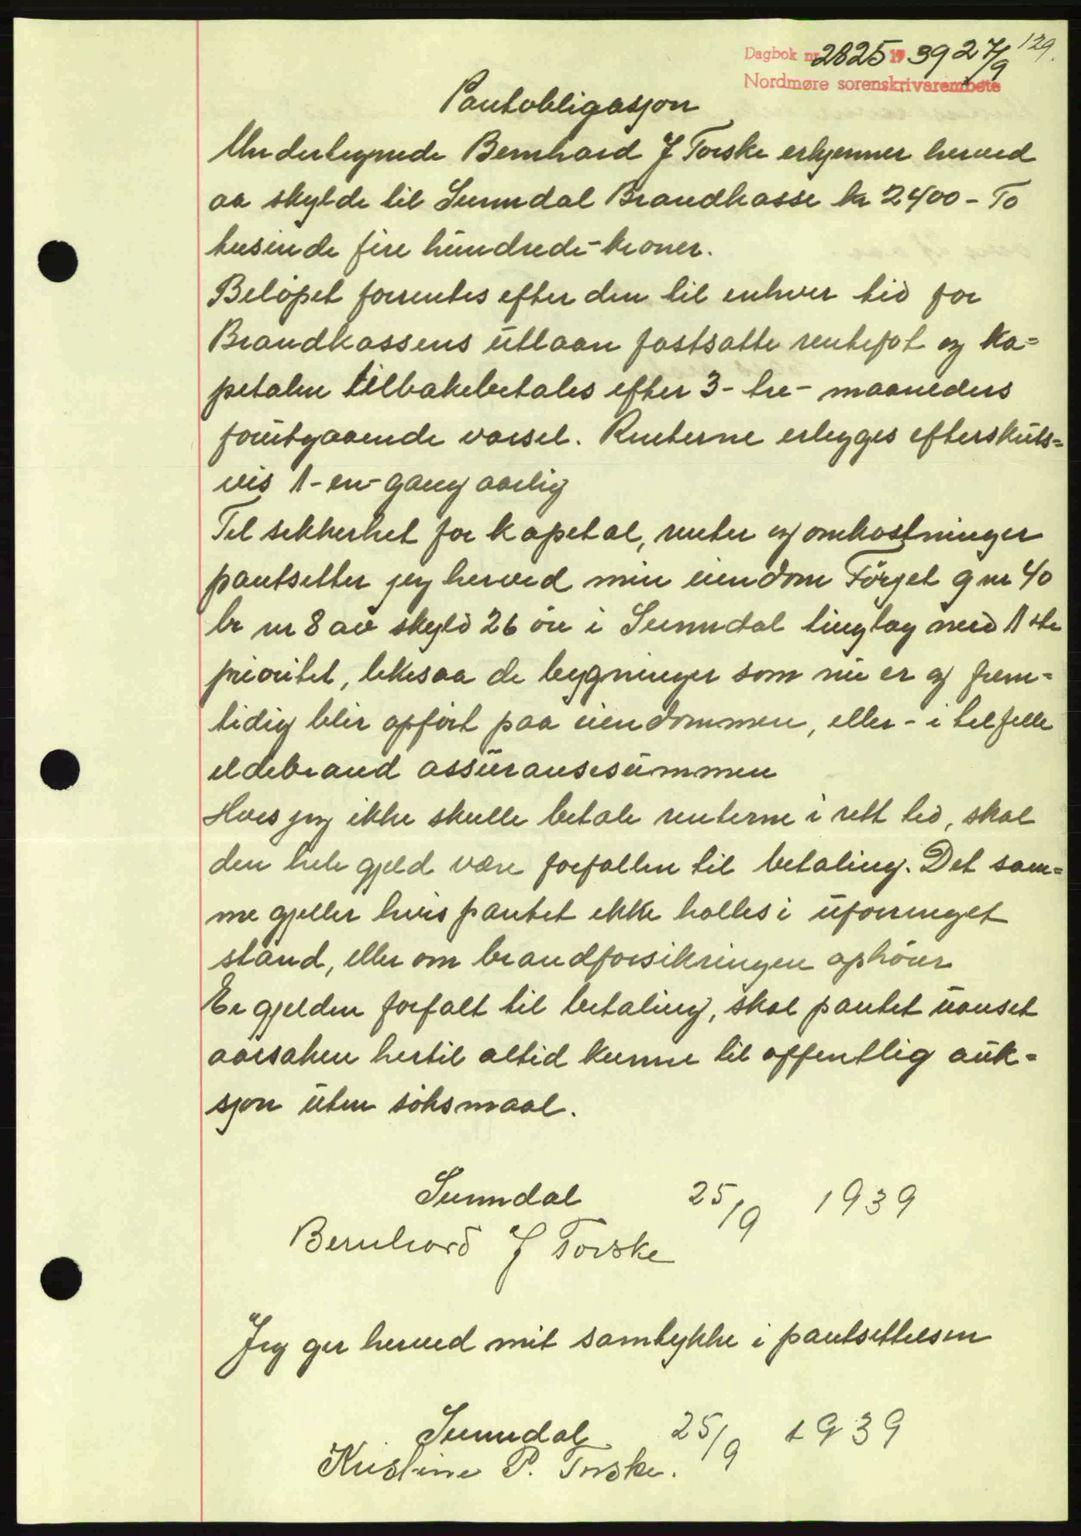 129.
Dagbok nr 2825 1939 27/9
Nordmøre sorenskrivarembete
Pantobligasjon
Undertegnede Bernhard J Torske erkjenner herved
aa skylde til Sunndal Brandkasse kr 2400 - To
tusinde fire hundrede - kroner.
Beløpet forrentes efter den til enhver tid for
Brandkassens utlaan fastsatte rentefot og ka=
petalen tilbakebetales efter 3 - tre - maaneders
forutgaaende varsel. Renterne erlegges efterskuts=
vis 1 - en - gang aarlig
Til sikkerhet for kapetal, renter og omkostninger
pantsetter jeg herved min eiendom Törset g nr 40
br nr 8 av skyld 26 öre i Sunndal tinglag med 1ste
prioritet, likesaa de bygninger som nu er og frem=
tidig blir opfört paa eiendommen, eller - i tilfelle
ildebrand assüransesümmen
Hvis jeg ikke skulle betale renterne i rett tid, skal
den hele gjeld være forfallen til betaling. Det sam=
me gjeller hvis pantet ikke holles i uforringet
stand, eller om brandforsikringen ophörer
Er gjelden forfalt til betaling, skal pantet uanset
aarsaken hertil altid kunne til offentlig auk=
sjon uten söksmaal.
Sunndal 25/9 1939
Bernhard J Torske
Jeg ger herved mit samtykke i pantsettelsen
Sunndal 25/9 1939
Kristine P. Torske.